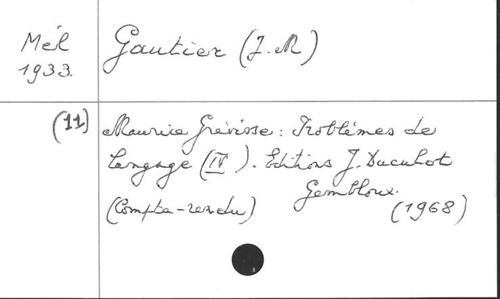 Mél
1933.
Gautier (J.M)
(11)
Maurice Grévisse: Problèmes de
langage (IV). Editions J. Duculot
Gembloux.
(Compte-rendu)
(1968)